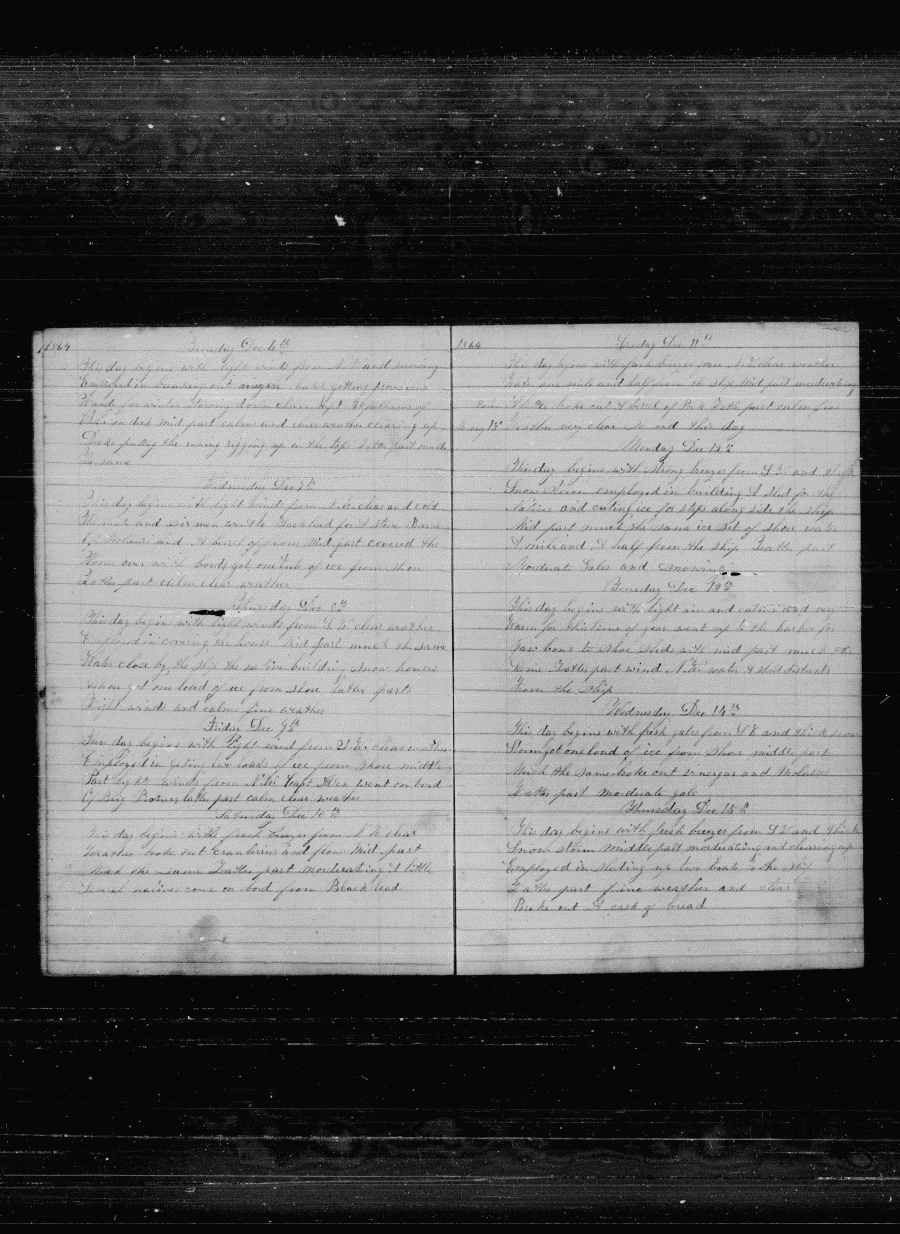 1864
Tuesday Dec 6th
This day begins with light winds from N. W. and snowing
Employed in breaking out main hatch getting provisions
for winter Stowing down
deck mid part calm and clear weather clearing up
Decks the rigging up in the tops Latter part much
the same
Wednesday Dec 7th
This day begins with light winds from N. W. clear and cold
The mate and six men went to Blacklead for A Stove
of Molasses and A barrel of mid part covered the
House over with boards got one load of ice from shore
Latter part calm clear weather
Thursday Dec 8th
This day begins with light winds from N. W. clear weather
Employed in covering the house Mid part much the same
Water close by the ship the natives building snow houses
ashore got one load of ice from shore latter part
Light winds and calm fine weather
Friday Dec 9th
This day begins with light wind from N. W. clear weather
Employed in geting two loads of ice from shore middle
Part light winds from N. W. Capt Allen went on bord
Of Brig latter part calm clear weather
Saturday Dec 10th
This day begins with fresh breezes from N. W. clear
Weather broke out Cranberries and flour Mid part
Much the same Latter part moderating A little
Several natives come on bord from Black lead
1864
Sunday Dec 11th
This day begins with fresh breezes from N. W. clear weather
Water one mile and half from the ship Mid part moderating
A little broke out A barrel of Pork Latter part calm fine
Weather very clear So ends this day
Monday Dec 12th
This day begins with strong breezes from S. E. and thick
Snow Storm employed in building A Shed for the
and cuting ice for steps along side the ship
Mid part much the same ice set of shore water
A mile and A half from the ship Latter part
Moderat Gales and snowing
Tuesday Dec 13th
This day begins with light air and calms and very
Warm for this time of year went up to the harbor for
Jaw bons to Shoe Sleds with mid part much the
Same Latter part wind N. W. water A short distants
From the ship
Wednesday Dec 14th
This day begins with fresh gales from S E and thick snow
Storm got one load of ice from shore middle part
Much the same broke out vinegar and Molasses
Latter part moderate gale
Thursday Dec 15th
This day begins with fresh breezes from S E and thick
Snow storm middle part moderating and clearing up
Employed in sleding up two boats to the ship
Latter part fine weather and clear
Broke out A cask of bread